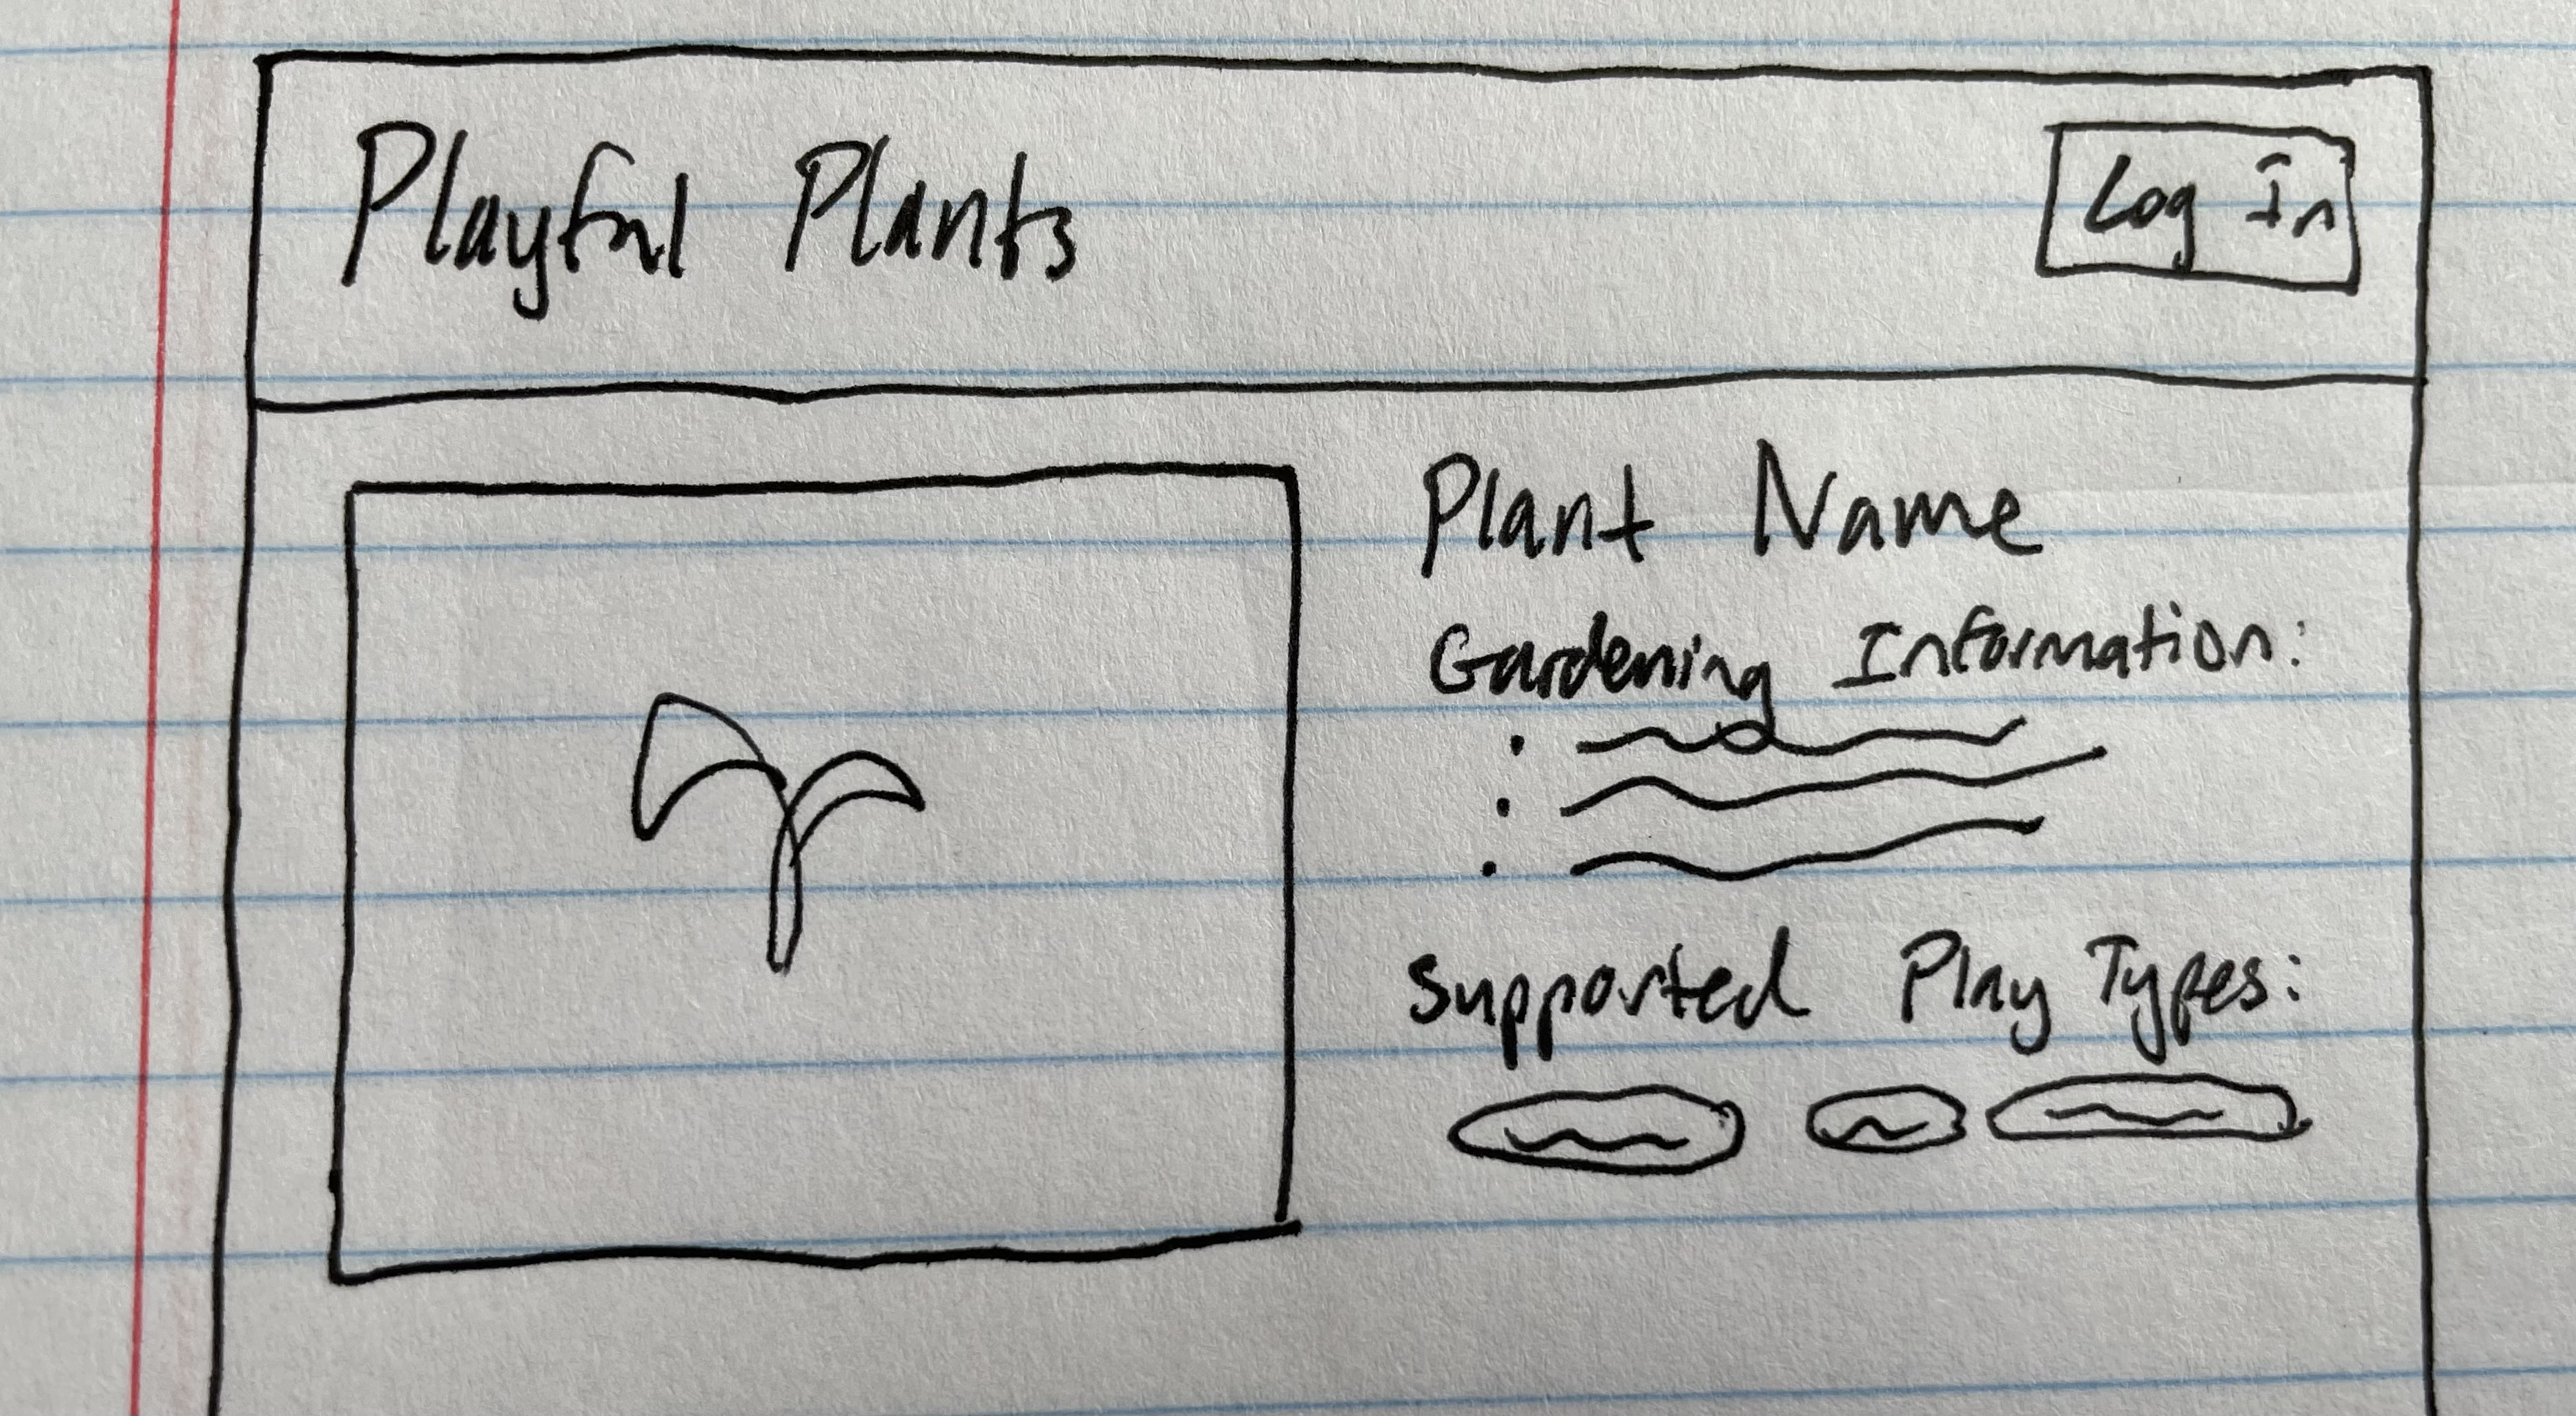 Playful Plants
Log In
Plant Name
Gardening Information:
Supported Play Types: